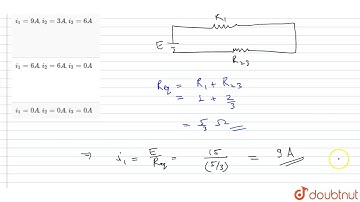 i₁ = 9A, i₂ = 3A, i₃ = 6A
i₁ = 6A, i₂ = 6A, i₃ = 0A
i₁ = 0A, i₂ = 0A, i₃ = 0A
R₁
E
R₂₃
Req = R₁ + R₂₃
= 1 + 2/3
= 5/3 Ω
⇒ i₁ = E/Req = 15/(5/3) = 9A
doubtnut